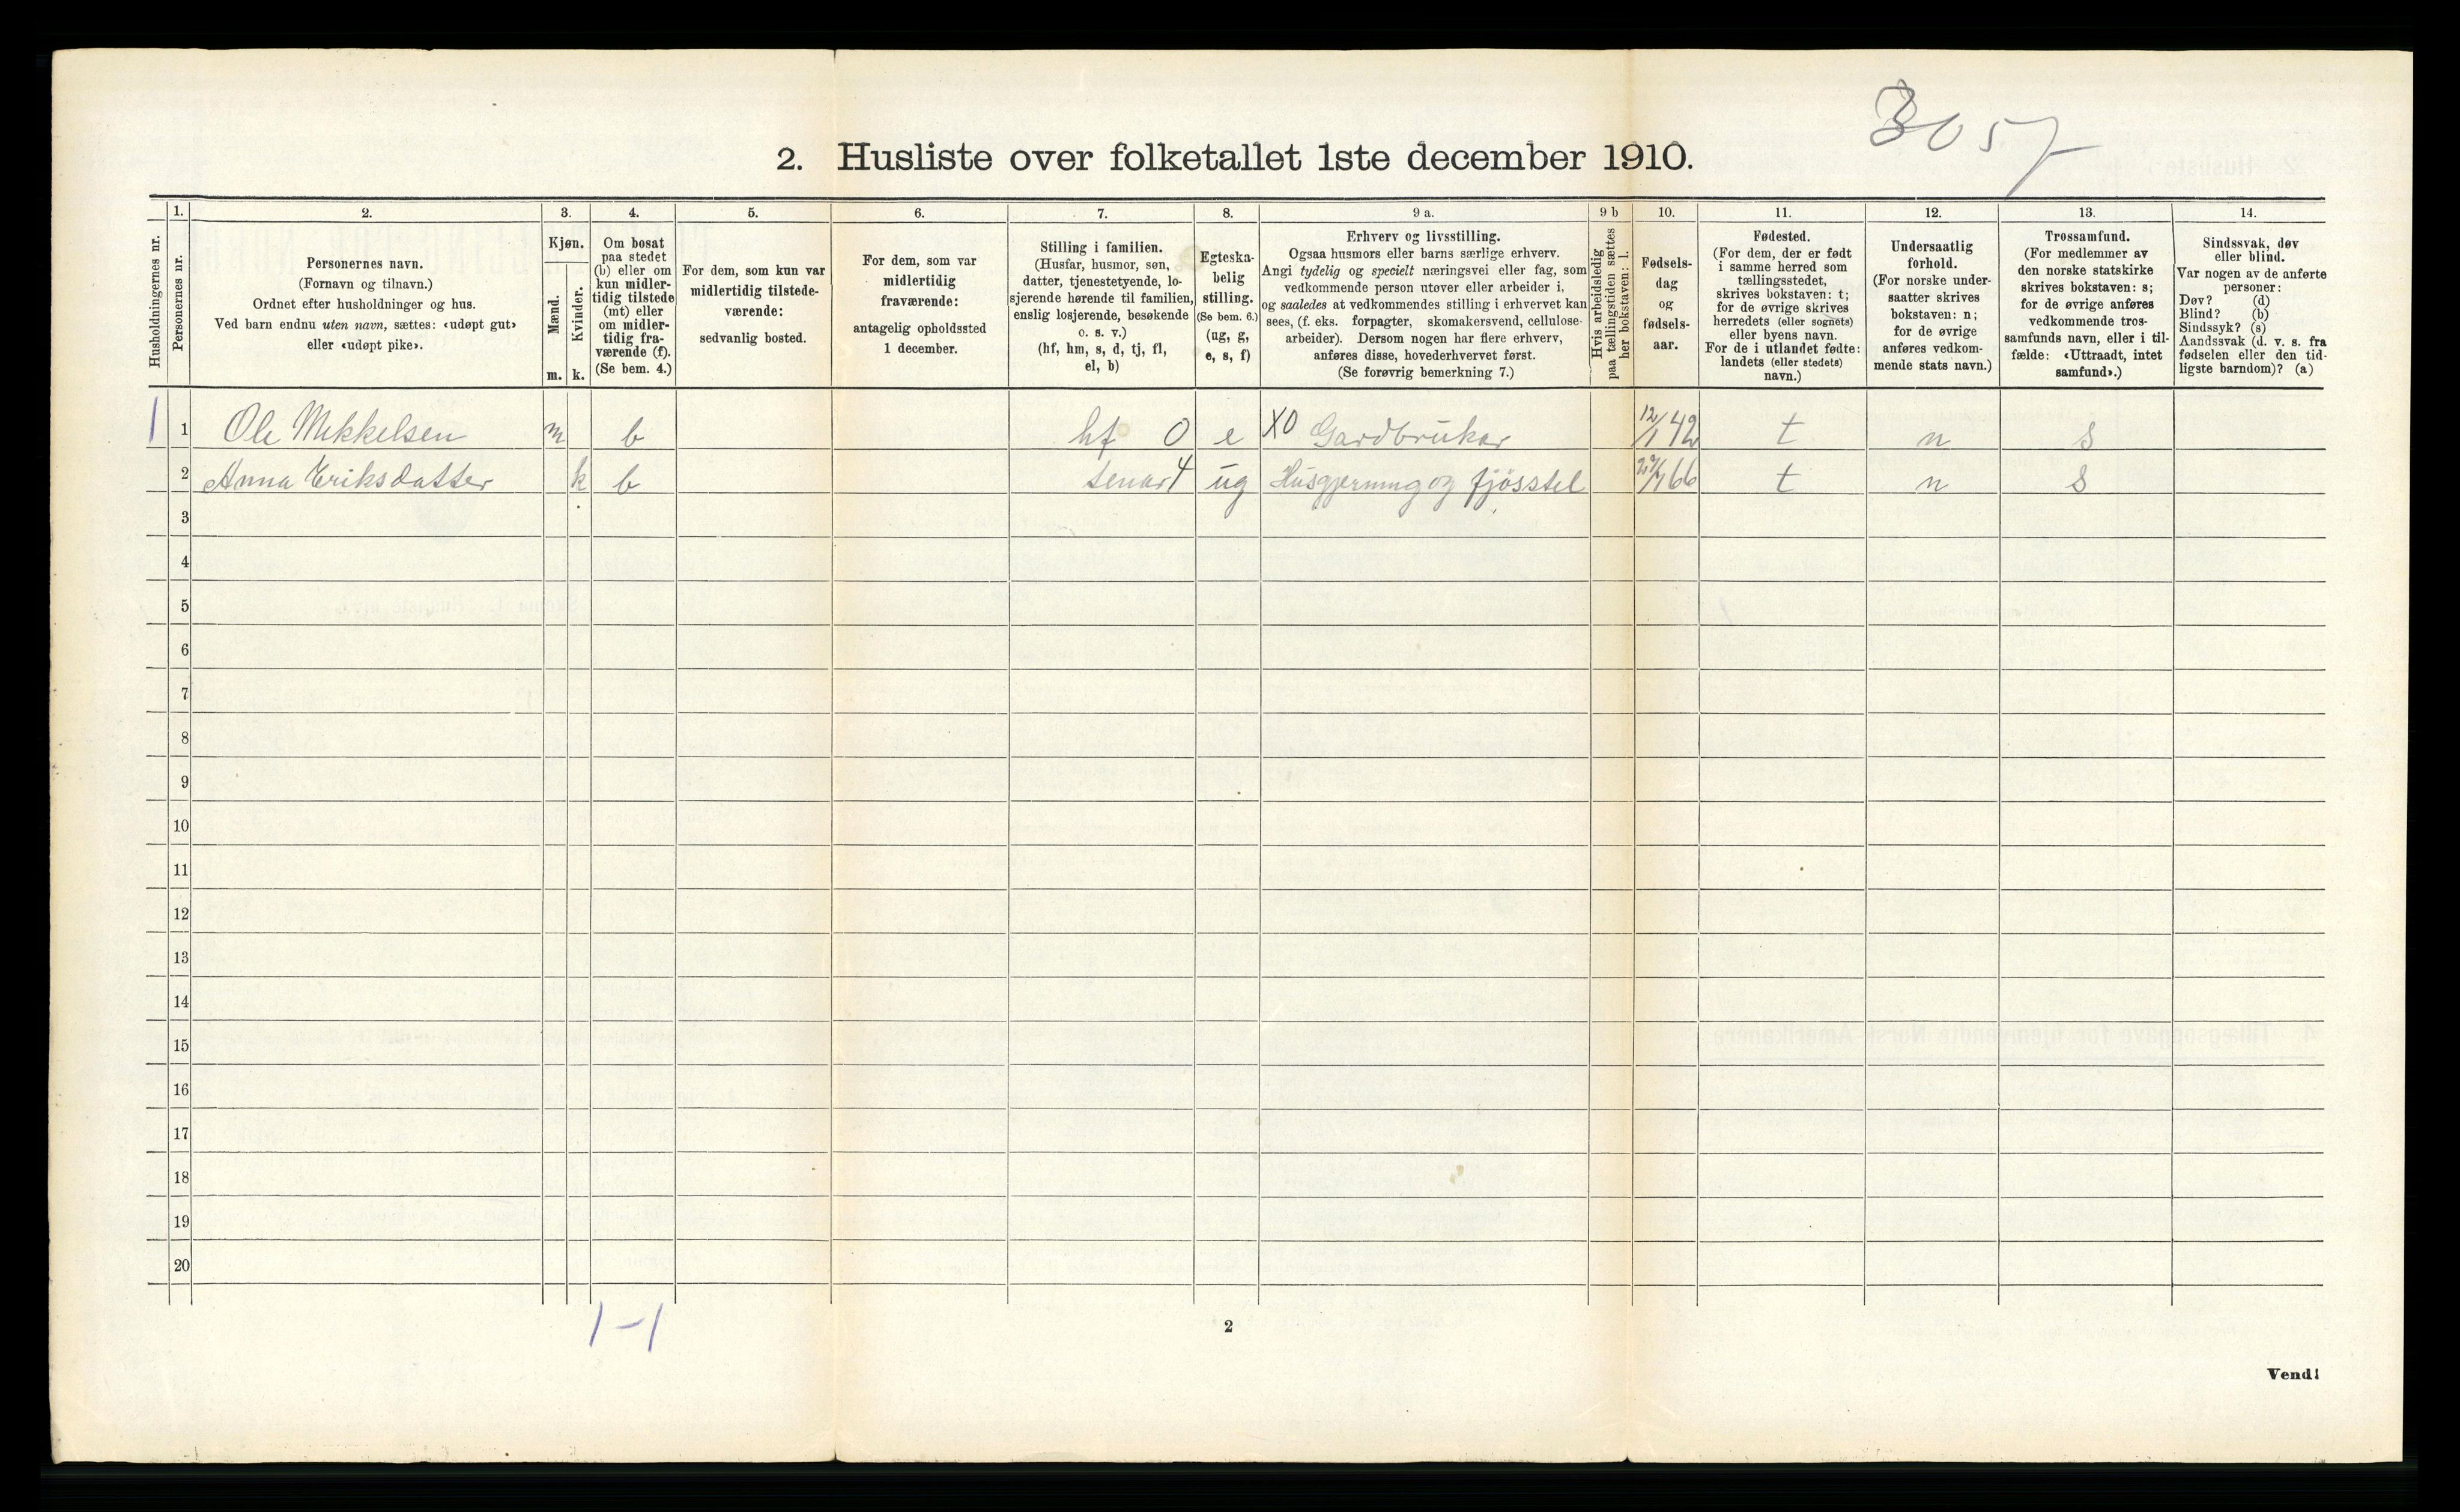 3057
2. Husliste over folketallet 1ste december 1910.
Husholdningernes nr.
1.
Personernes nr.
2.
Personernes navn.
(Fornavn og tilnavn.)
Ordnet efter husholdninger og hus.
Ved barn endnu uten navn, sættes: «udøpt gut»
eller «udøpt pike».
3.
Kjøn.
Mænd.
Kvinder.
m. k.
4.
Om bosat
paa stedet
(b) eller om
kun midler-
tidig tilstede
(mt) eller
om midler-
tidig fra-
værende (f).
(Se bem. 4.)
5.
For dem, som kun var
midlertidig tilstede-
værende:
sedvanlig bosted.
6.
For dem, som var
midlertidig
fraværende:
antagelig opholdssted
1 december.
7.
Stilling i familien.
(Husfar, husmor, søn,
datter, tjenestetyende, lo-
sjerende hørende til familien,
enslig losjerende, besøkende
o. s. v.)
(hf, hm, s, d, tj, fl,
el, b)
8.
Egteska-
belig
stilling.
(Se bem. 6.)
(ug, g,
e, s, f)
9 a.
Erhverv og livsstilling.
Ogsaa husmors eller barns særlige erhverv.
Angi tydelig og specielt næringsvei eller fag, som
vedkommende person utøver eller arbeider i,
og saaledes at vedkommendes stilling i erhvervet kan
sees, (f. eks. forpagter, skomakersvend, cellulose-
arbeider). Dersom nogen har flere erhverv,
anføres disse, hovederhvervet først.
(Se forøvrig bemerkning 7.)
9 b
Hvis arbeidsledig
paa tællingstiden sættes
her bokstaven: l.
10.
Fødsels-
dag
og
fødsels-
aar.
11.
Fødested.
(For dem, der er født
i samme herred som
tællingsstedet,
skrives bokstaven: t;
for de øvrige skrives
herredets (eller sognets)
eller byens navn.
For de i utlandet fødte:
landets (eller stedets)
navn.)
12.
Undersaatlig
forhold.
(For norske under-
saatter skrives
bokstaven: n;
for de øvrige
anføres vedkom-
mende stats navn.)
13.
Trossamfund.
(For medlemmer av
den norske statskirke
skrives bokstaven: s;
for de øvrige anføres
vedkommende tros-
samfunds navn, eller i til-
fælde: «Uttraadt, intet
samfund».)
14.
Sindssvak, døv
eller blind.
Var nogen av de anførte
personer:
Døv? (d)
Blind? (b)
Sindssyk? (s)
Aandssvak (d. v. s. fra
fødselen eller den tid-
ligste barndom)? (a)
1 1 Ole Mikkelsen m b hf 0 e X0 Gardbrukar 12/1 42 t n s
2 Anna Eriksdatter k b tenar 4 ug Husgjerning og fjösstel 66 t n s
3
4
5
6
7
8
9
10
11
12
13
14
15
16
17
18
19
20
1-1
2
Vend!